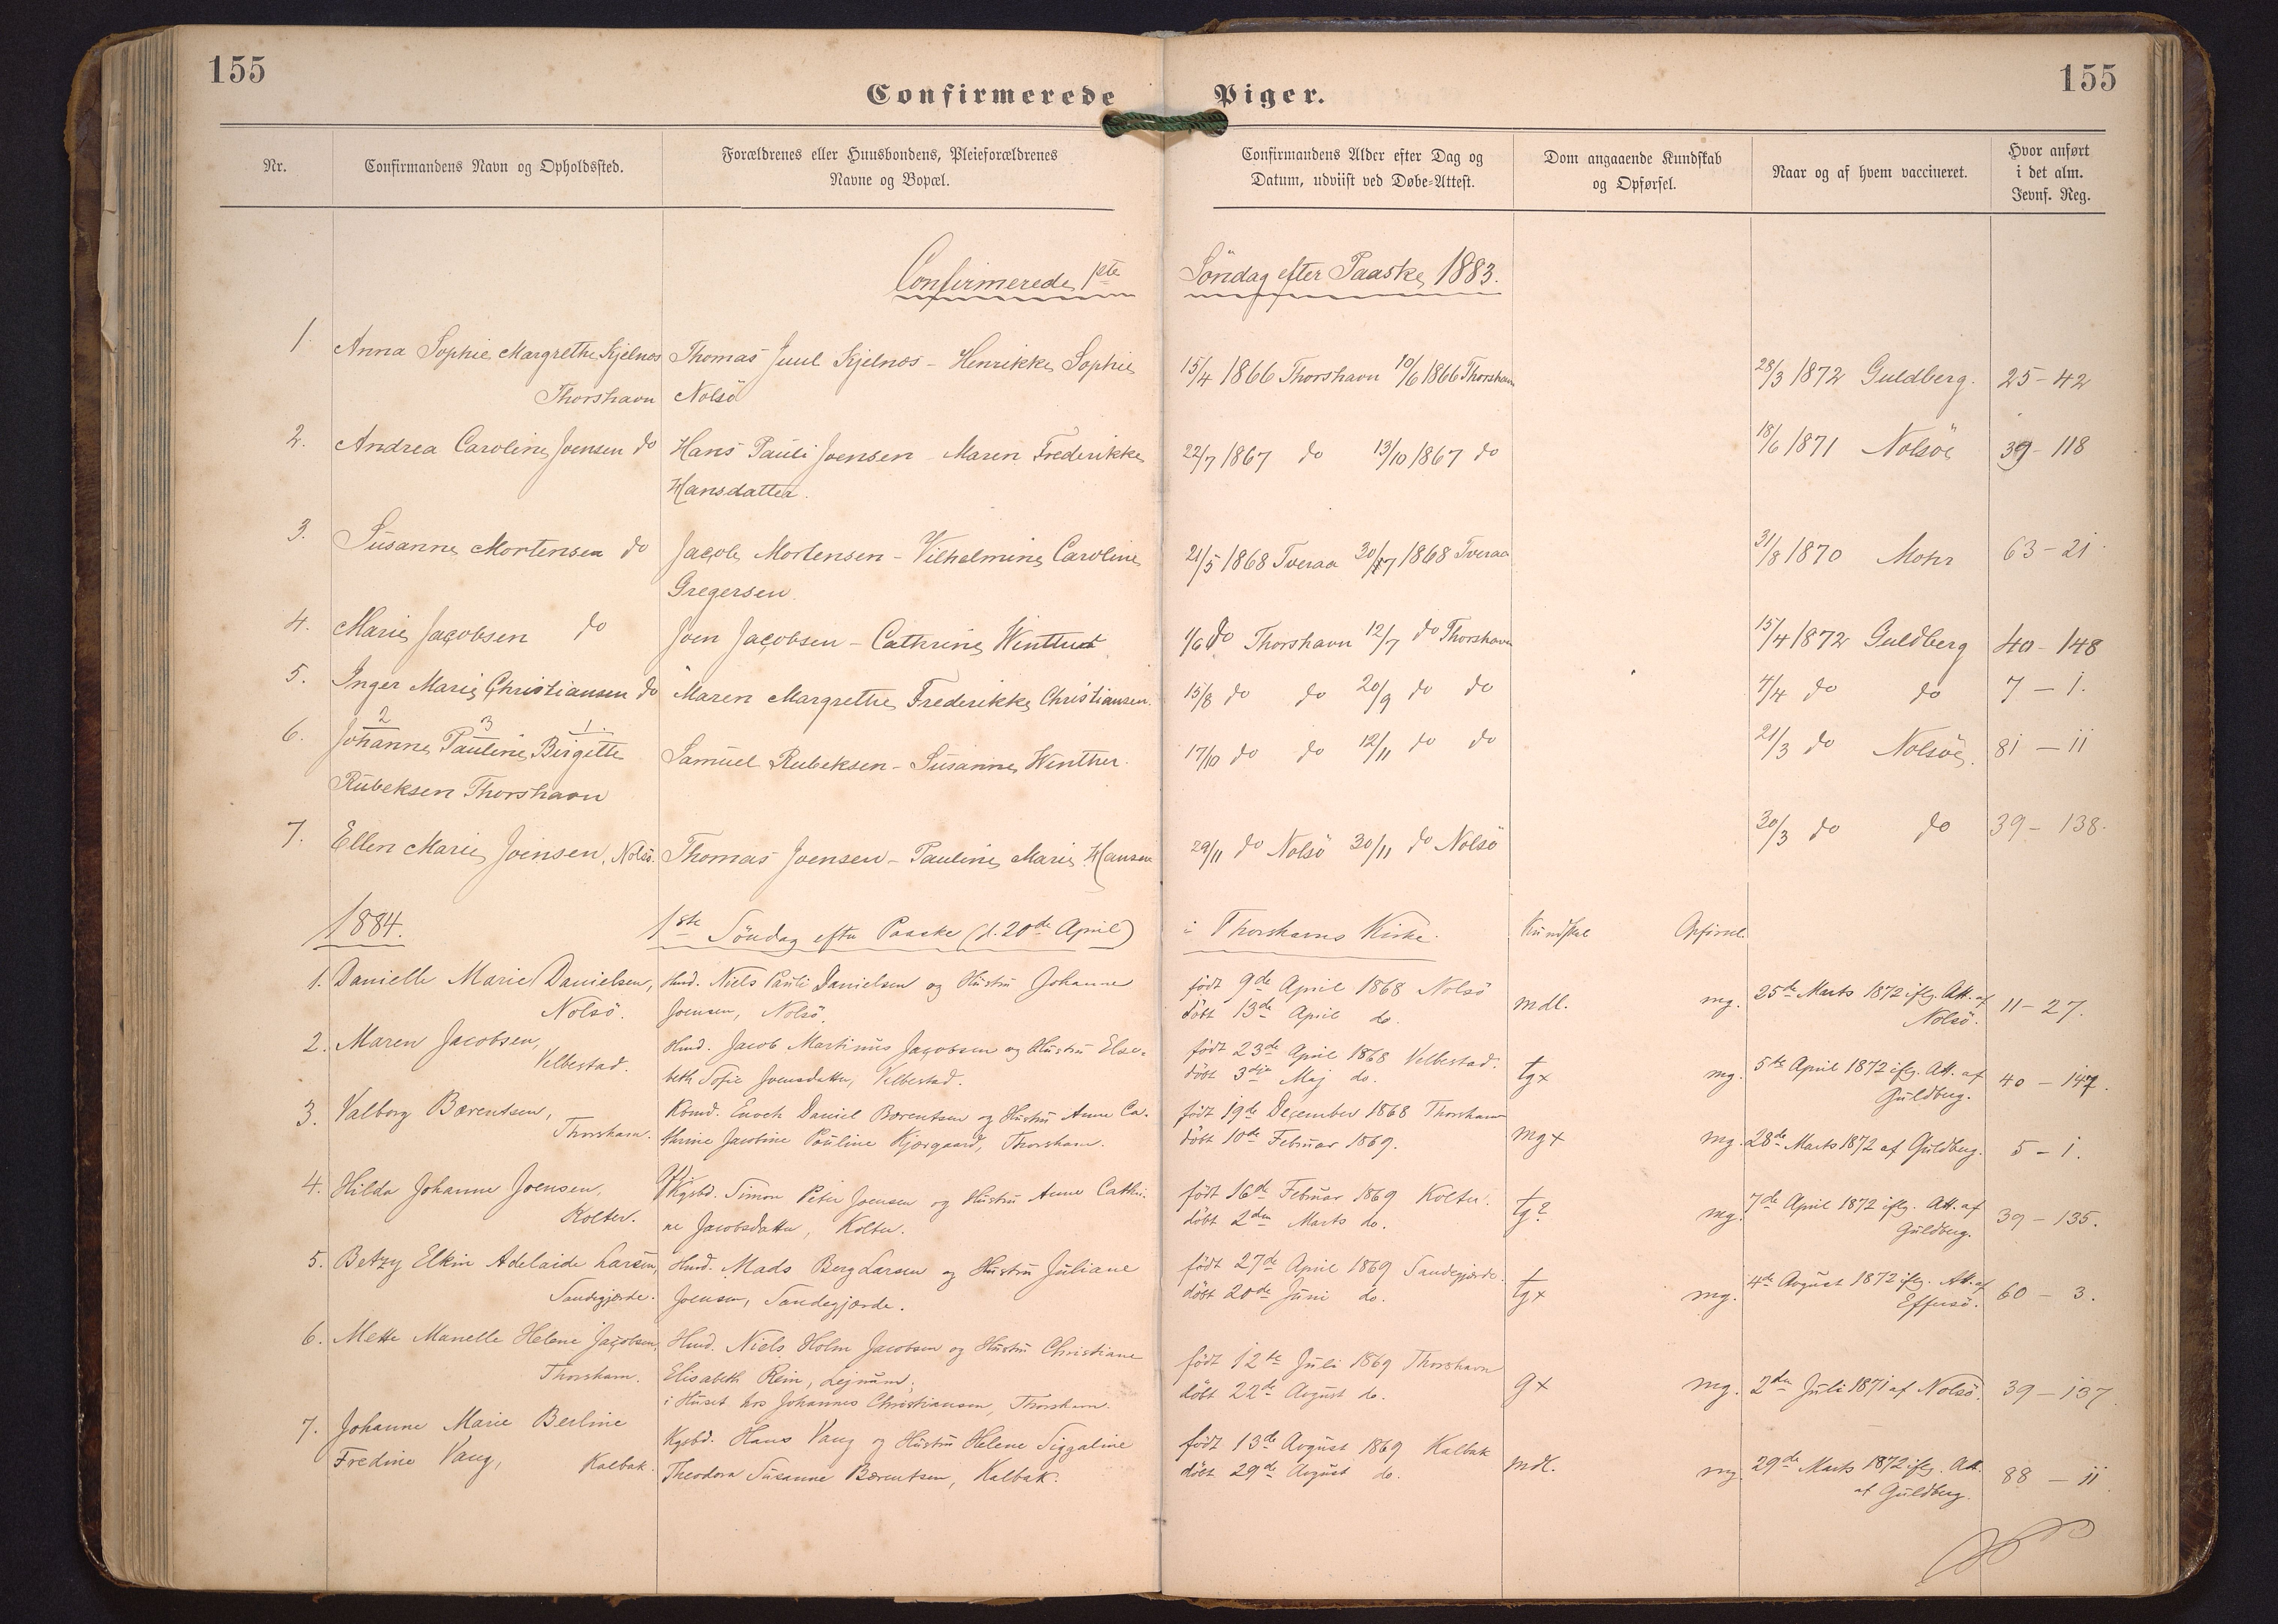 155
155
Confirmerede Piger.
Nr.
Confirmandens Navn og Opholdssted.
Forældrenes eller Huusbondens, Pleieforældrenes
Navne og Bopæl.
Confirmandens Alder efter Dag og
Datum, udviist ved Døbe-Attest.
Dom angaaende Kundskab
og Opførsel.
Naar og af hvem vaccineret.
Hvor anført
i det alm.
Jevnf. Reg.
Confirmerede 1ste Søndag efter Paaske 1883.
1 Anna Sophie Margrethe Kjelnæs Thomas Juul Kjelnæs - Henrikke Sophie 15/4 1866 Thorshavn 10/6 1866 Thorshavn 28/3 1872 Guldberg. 25-42
Thorshavn Nolsö
2. Andrea Caroline Joensen do Hans Pauli Joensen - Maren Frederikke 22/7 1867 do 13/10 1867 do 18/6 1871 Nolsöe 39-118
Hansdatter.
3. Susanne Mortensen do Jacob Mortensen - Vilhelmine Caroline 21/5 1868 Tveraa 30/7 1868 Tveraa 31/8 1870 Mohr 63-21
Gregersen.
4. Marie Jacobsen do Joen Jacobsen - Cathrine Winther 1/6 do Thorshavn 12/7 do Thorshavn 15/4 1872 Guldberg 40-148
5. Inger Marie Christiansen do Maren Margrethe Frederikke Christiansen. 15/8 do do 20/9 do do 4/4 do do 7-1.
2 3 1
6. Johanne Pauline Birgitte Samuel Rubeksen - Susanne Winther. 17/10 do do 12/11 do do 21/3 do Nolsöe. 81-11
Rubeksen Thorshavn
7. Ellen Marie Joensen, Nolsö. Thomas Joensen - Pauline Marie Hansen 29/11 do Nolsö 30/11 do Nolsö 30/3 do do 39-138.
1884. 1ste Söndag efter Paaske (d. 20de April) i Thorshavns Kirke. Kundskab Opførsel.
1. Danielle Marie Danielsen, Hmd. Niels Pauli Danielsen og Hustru Johanne født 9de April 1868 Nolsö mdl. mg. 25de Marts 1872 iflg. Att. af 11-27.
Nolsö. Joensen, Nolsö. døbt 13de April do. Nolsö.
2. Maren Jacobsen, Hmd. Jacob Martinus Jacobsen og Hustru Else- født 23de April 1868 Velbestad. tg× mg. 5te April 1872 iflg. Att. af 40-147.
Velbestad. beth Sofie Joensdatter, Velbestad. døbt 3die Maj do. Guldberg.
3. Valborg Bærentsen, Kbmd. Enoch Daniel Bærentsen og Hustru Anne Ca- født 19de December 1868 Thorshavn mg× mg. 28de Marts 1872 af Guldberg. 5-1.
Thorshavn. thrine Jacobine Pauline Kjærgaard, Thorshavn. døbt 10de Februar 1869.
4. Hilda Johanne Joensen, Kgsbd. Simon Peter Joensen og Hustru Anne Cathri- født 16de Februar 1869 Kolter. tg? mg. 7de April 1872 iflg. Att. af 39-135.
Kolter. ne Jacobsdatter, Kolter. døbt 2den Marts do. Guldberg.
5. Betzy Elkin Adelaide Larsen, Hmd. Mads Berg Larsen og Hustru Juliane født 27de April 1869 Sandegjerde. tg× mg. 4de August 1872 iflg. Att. af 60-3.
Sandegjerde. Joensen, Sandegjærde. døbt 20de Juni do. Effersö.
6. Mette Manelle Helene Jacobsen, Hmd. Niels Holm Jacobsen og Hustru Christiane født 12te Juli 1869 Thorshavn g× mg. 2den Juli 1871 af Nolsö. 39-137
Thorshavn. Elisabeth Rein, døbt 22de August do.
i Huset hos Johannes Christiansen, Thorshavn.
7. Johanne Marie Berline Kgsbd. Hans Vang og Hustru Helene Siggaline født 13de August 1869 Kalbak mdl. mg. 29de Marts 1872 iflg. Att. 88-11
Fredine Vang, Kalbak. Theodora Susanne Bærentsen, Kalbak. døbt 29de August do. af Guldberg.